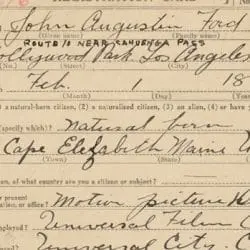 REGISTRATION CARD
John Augustin Ford
(Given name) (Family name)
ROUTE 10 NEAR CAHUENGA PASS
Hollywood Park Los Angeles
(No.) (Street) (City)
Feb. 1 18
(Month) (Day)
a natural-born citizen, (2) a naturalized citizen, (3) an alien, (4) or have
specify which)? Natural born
Cape Elezabeth Maine
(Town) (State)
, of what country are you a citizen or subject?
present
or office? Motion picture
ployed? Universal Film
Universal City